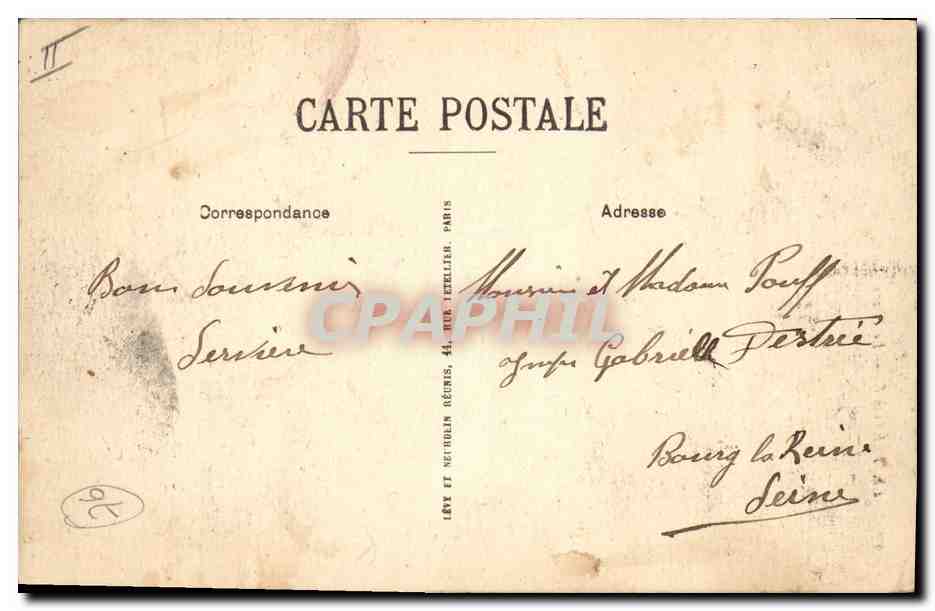 II
CARTE POSTALE
Correspondance
Adresse
Bons Souvenirs
Servière
LÉVY ET NEURDEIN RÉUNIS, 44, RUE LETELLIER, PARIS
Monsieur et Madame Pouff
Gabrielle Destrée
Bourg la Reine
Seine
CPAPHIL